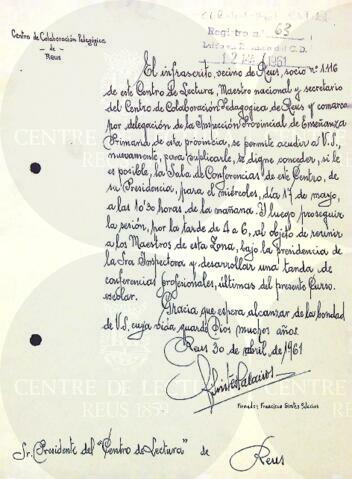 Centro de Colaboración Pedagógica
- de -
REUS
Registro nº 63
12 1961
El infrascrito, vecino de Reus, socio nº 1116
de este Centro de Lectura, Maestro nacional y secretario
del Centro de Colaboración Pedagogica de Reus y comarca
por delegación de la Inspección Provincial de Enseñanza
Primaria de esta provincia, se permite acudir a V.S.,
nuevamente, para suplicarle, se digne conceder, si le
es posible, la Sala de Conferencias de este Centro, de
su Presidencia, para el miércoles, día 17 de mayo,
a las 10'30 horas de la mañana. Y luego proseguir
la sesión, por la tarde de 4 a 6, al objeto de reunir
a los Maestros de esta Zona, bajo la Presidencia de
la Sra Inspectora y desarrollar una tanda de
conferencias profesionales, últimas del presente Curso
escolar.
Gracia que espera alcanzar de la bondad
de V.S. cuya vida guarde Dios muchos años.
Reus 30 de abril, de 1961
Firmado: Francisco Simtes Palacios
Sr. Presidente del "Centro de Lectura" de Reus
CENTRE DE LECTURA
REUS 1859